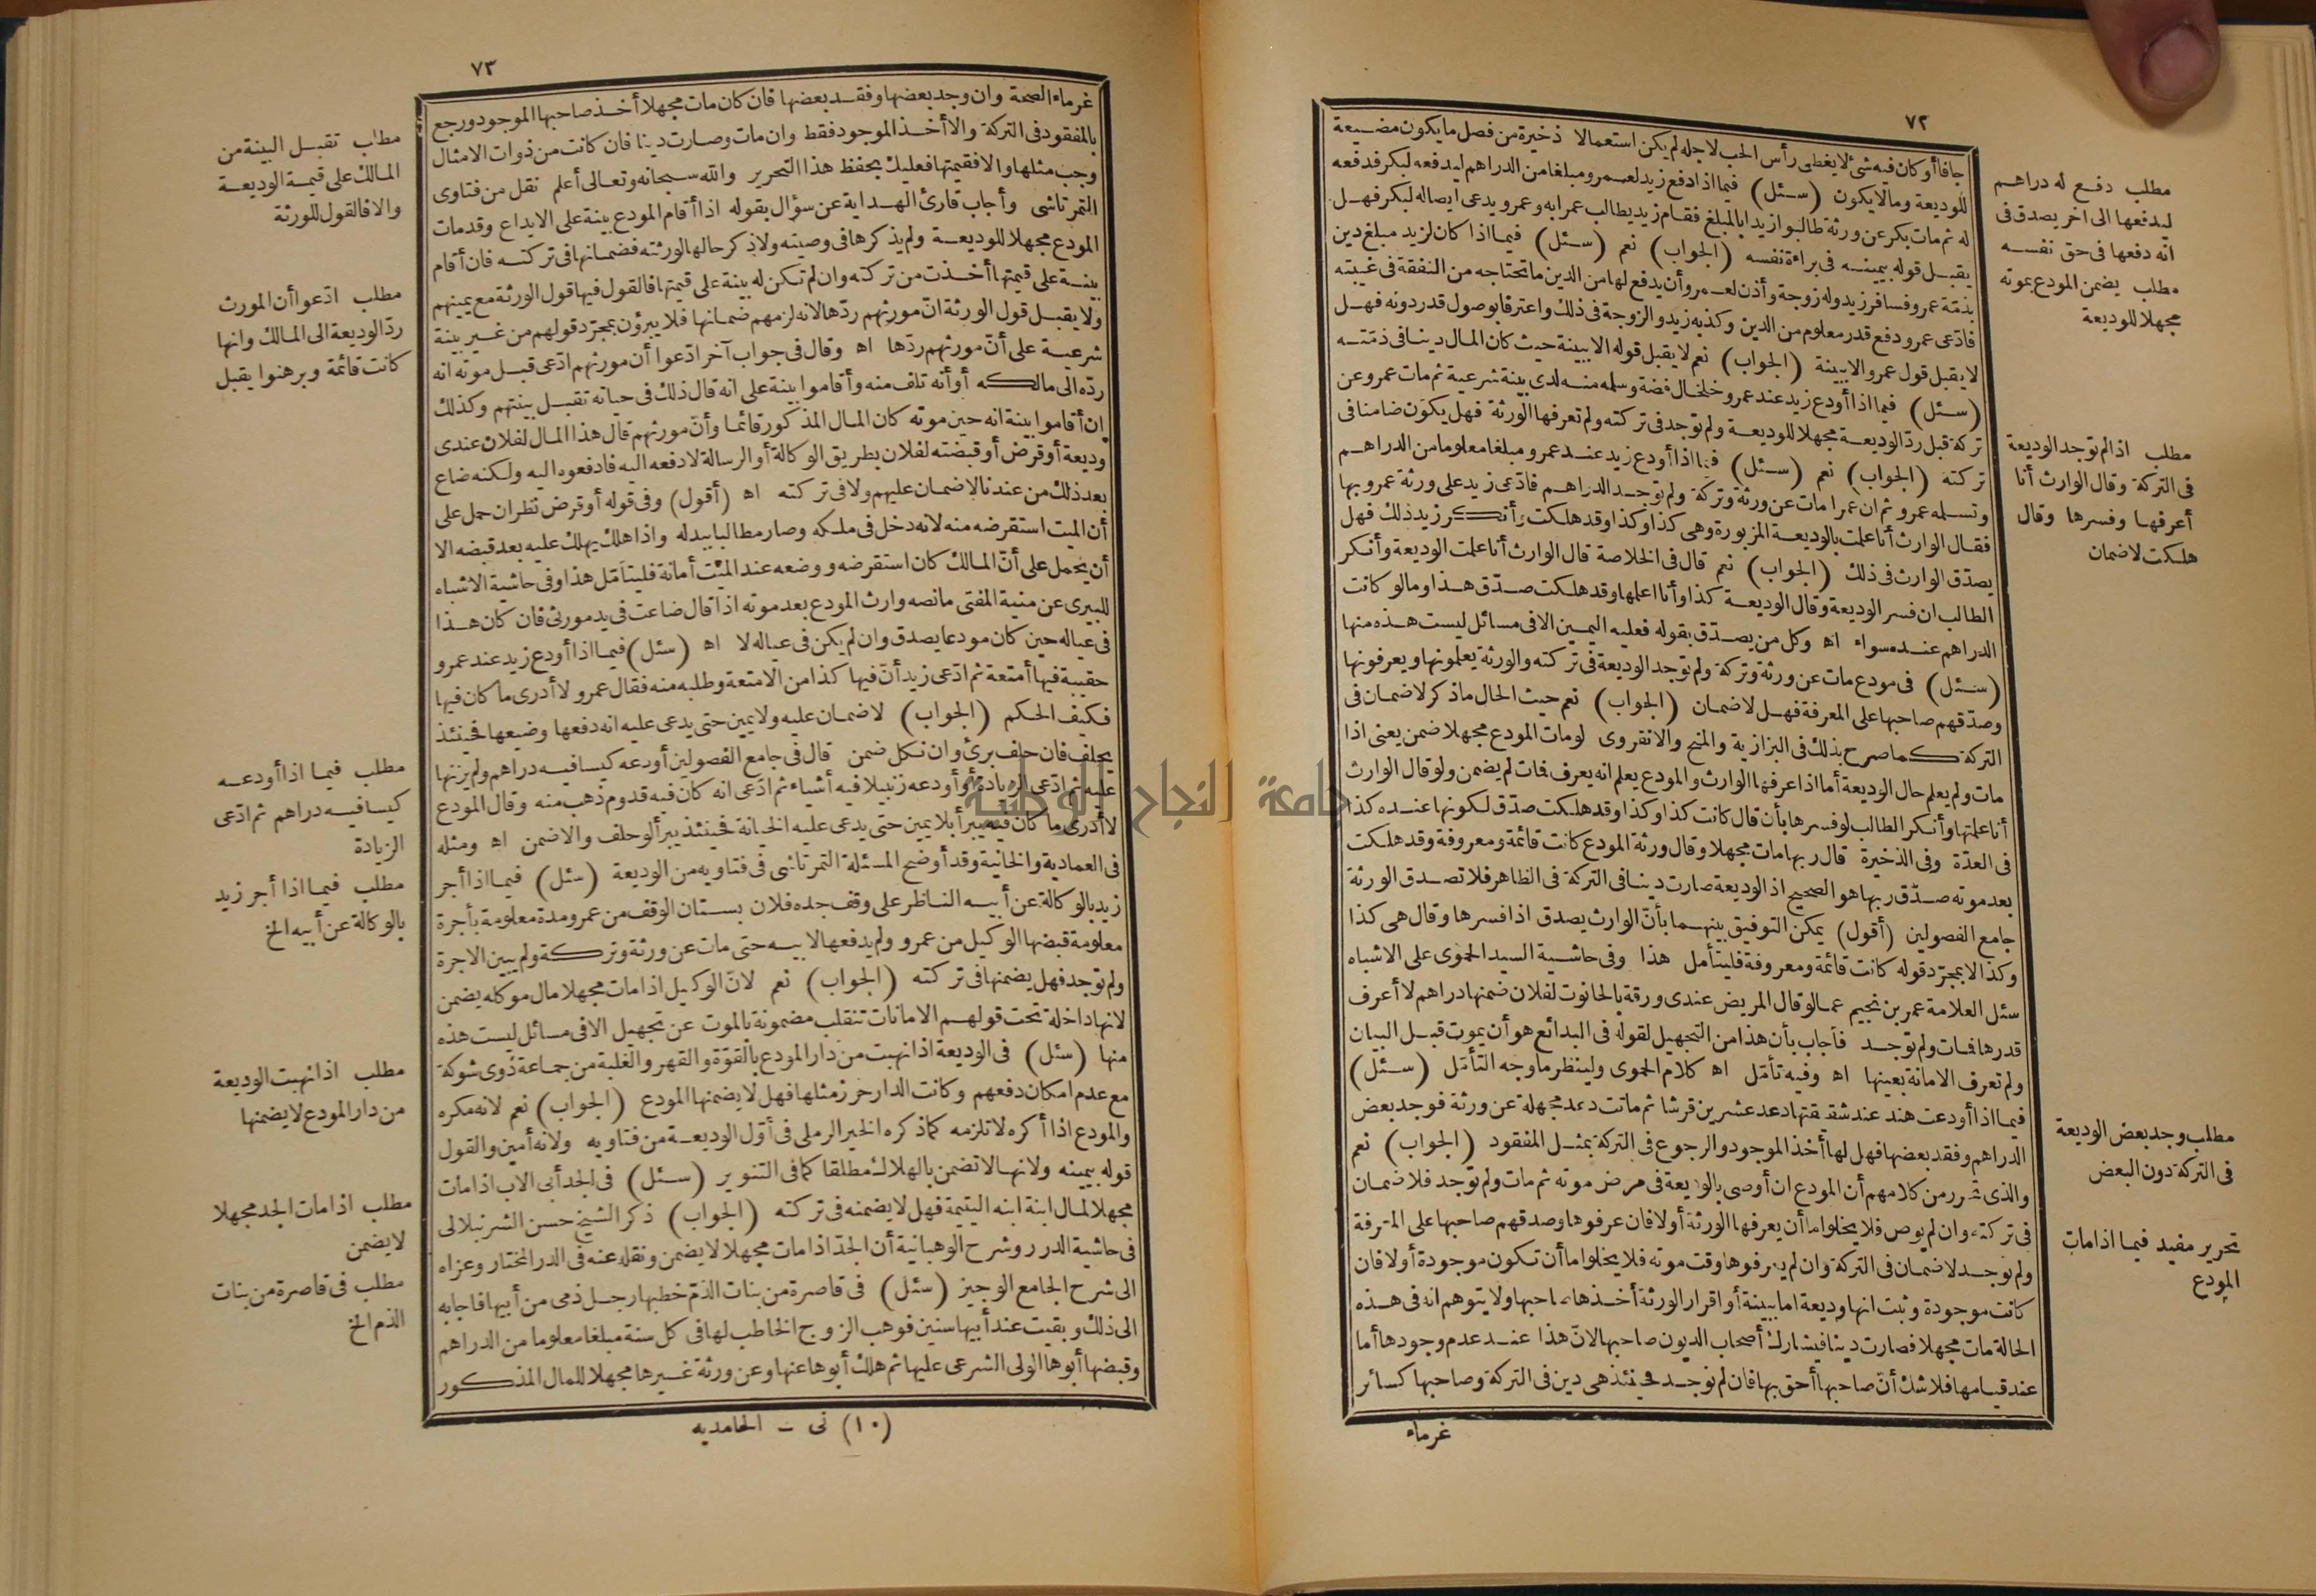 ٧٢
جافا أو كان فيه شئ لا يغطى رأس الحب لاجله لم يكن استعمالا ذخيرة من فصل ما يكون مضيعة
للوديعة وما لا يكون (سئل) فيما اذا دفع زيد لعمرو مبلغا من الدراهم ليدفعه لبكر فدفعه
له ثم مات بكر عن ورثة طالبوا زيدا بالمبلغ فقام زيد يطالب عمرا به وعمرو يدعى ايصاله لبكر فهل
يقبل قوله بيمينه فى براءة نفسه (الجواب) نعم (سئل) فيما اذا كان لزيد مبلغ دين
بذمة عمرو فسافر زيد وله زوجة وأذن لعمرو أن يدفع لها من الدين ما تحتاجه من النفقة فى غيبته
فادّعى عمرو دفع قدر معلوم من الدين وكذبه زيد والزوجة فى ذلك واعترفا بوصول قدر دونه فهل
لا يقبل قول عمرو الا ببينة (الجواب) نعم لا يقبل قوله الا ببينة حيث كان المال دينا فى ذمته
(سئل) فيما اذا أودع زيد عند عمرو خلخال فضة وسلمه منه لدى بينة شرعية ثم مات عمرو عن
تركة قبل ردّ الوديعة مجهلا للوديعة ولم توجد فى تركته ولم تعرفها الورثة فهل يكون ضامنا فى
تركته (الجواب) نعم (سئل) فيما اذا أودع زيد عند عمرو مبلغا معلوما من الدراهم
وتسلمه عمرو ثم ان عمرا مات عن ورثة وتركة ولم توجد الدراهم فادّعى زيد على ورثة عمرو بها
فقال الوارث أنا علمت بالوديعة المزبورة وهى كذا وكذا وقد هلكت وأنكر زيد ذلك فهل
يصدّق الوارث فى ذلك (الجواب) نعم قال فى الخلاصة قال الوارث أنا علمت الوديعة وأنكر
الطالب ان فسر الوديعة وقال الوديعة كذا وأنا اعلمها وقد هلكت صدّق هذا وما لو كانت
الدراهم عنده سواء اه وكل من يصدّق بقوله فعليه اليمين الا فى مسائل ليست هذه منها
(سئل) فى مودع مات عن ورثة وتركة ولم توجد الوديعة فى تركته والورثة يعلمونها ويعرفونها
وصدّقهم صاحبها على المعرفة فهل لا ضمان (الجواب) نعم حيث الحال ما ذكر لا ضمان فى
التركة كما صرح بذلك فى البزازية والمنح والانقروى لو مات المودع مجهلا ضمن يعنى اذا
مات ولم يعلم حال الوديعة أما اذا عرفها الوارث والمودع يعلم انه يعرف فات لم يضمن ولو قال الوارث
أنا علمتها وأنكر الطالب لو فسرها بأن قال كانت كذا وكذا وقد هلكت صدّق لكونها عنده كذا
فى العدّة وفى الذخيرة قال ربها مات مجهلا وقال ورثة المودع كانت قائمة ومعروفة وقد هلكت
بعد موته صدّق ربها هو الصحيح اذ الوديعة صارت دينا فى التركة فى الظاهر فلا تصدق الورثة
جامع الفصولين (أقول) يمكن التوفيق بينهما بأنّ الوارث يصدق اذا فسرها وقال هى كذا
وكذا لا بمجرّد قوله كانت قائمة ومعروفة فليتأمل هذا وفى حاشية السيد الحموى على الاشباه
سئل العلامة عمر بن نجيم عما لو قال المريض عندى ورقة بالحانوت لفلان ضمنها دراهم لا أعرف
قدرها فمات ولم توجد فأجاب بأن هذا من التجهيل لقوله فى البدائع هو أن يموت قبل البيان
ولم تعرف الامانة بعينها اه وفيه تأمّل اه كلام الحموى ولينظر ما وجه التأمّل (سئل)
فيما اذا أودعت هند عند شقيقتها دعد عشرين قرشا ثم ماتت دعد مجهلة عن ورثة فوجد بعض
الدراهم وفقد بعضها فهل لها أخذ الموجود والرجوع فى التركة بمثل المفقود (الجواب) نعم
والذى تحرر من كلامهم أن المودع ان أوصى بالوديعة فى مرض موته ثم مات ولم توجد فلا ضمان
فى تركته وان لم يوص فلا يخلو اما أن يعرفها الورثة أو لا فان عرفوها وصدقهم صاحبها على المعرفة
ولم توجد لا ضمان فى التركة وان لم يعرفوها وقت موته فلا يخلو اما أن تكون موجودة أو لا فان
كانت موجودة وثبت انها وديعة اما ببينة أو اقرار الورثة أخذها صاحبها ولا يتوهم انه فى هذه
الحالة مات مجهلا فصارت دينا فيشارك أصحاب الديون صاحبها لانّ هذا عند عدم وجودها أما
عند قيامها فلا شك أنّ صاحبها أحق بها فان لم توجد فحينئذ هى دين فى التركة وصاحبها كسائر
غرماء
مطلب دفع له دراهم
ليدفعها الى اخر يصدق فى
انه دفعها فى حق نفسه
مطلب يضمن المودع بموته
مجهلا للوديعة
مطلب اذا لم توجد الوديعة
فى التركة وقال الوارث أنا
أعرفها وفسرها وقال
هلكت لا ضمان
مطلب وجد بعض الوديعة
فى التركة دون البعض
تحرير مفيد فيما اذا مات
المودع
٧٣
غرماء الصحة وان وجد بعضها وفقد بعضها فان كان مات مجهلا أخذ صاحبها الموجود ورجع
بالمفقود فى التركة والا أخذ الموجود فقط وان مات وصارت دينا فان كانت من ذوات الامثال
وجب مثلها والا فقيمتها فعليك بحفظ هذا التحرير والله سبحانه وتعالى أعلم نقل من فتاوى
التمرتاشى وأجاب قارئ الهداية عن سؤال بقوله اذا أقام المودع بينة على الايداع وقد مات
المودع مجهلا للوديعة ولم يذكرها فى وصيته ولا ذكر حالها لورثته فضمانها فى تركته فان أقام
بينة على قيمتها أخذت من تركته وان لم تكن له بينة على قيمتها فالقول فيها قول الورثة مع يمينهم
ولا يقبل قول الورثة انّ مورثهم ردّها لانه لزمهم ضمانها فلا يبرؤن بمجرّد قولهم من غير بينة
شرعية على أنّ مورثهم ردّها اه وقال فى جواب آخر ادّعوا أن مورثهم ادّعى قبل موته انه
ردّه الى مالكه أو أنه تلف منه وأقاموا بينة على انه قال ذلك فى حياته تقبل بينتهم وكذلك
ان أقاموا بينة انه حين موته كان المال المذكور قائما وأنّ مورثهم قال هذا المال لفلان عندى
وديعة أو قرض أو قبضته لفلان بطريق الوكالة أو الرسالة لادفعه اليه فادفعوه اليه ولكنه ضاع
بعد ذلك من عندنا لا ضمان عليهم ولا فى تركته اه (أقول) وفى قوله أو قرض نظر ان حمل على
أن الميت استقرضه منه لانه دخل فى ملكه وصار مطالبا ببدله واذا هلك يهلك عليه بعد قبضه الا
أن يحمل على أنّ المالك كان استقرضه ووضعه عند الميت أمانة فليتأمّل هذا وفى حاشية الاشباه
للبيرى عن منية المفتى ما نصه وارث المودع بعد موته اذا قال ضاعت فى يد مورثى فان كان هذا
فى عياله حين كان مودعا يصدق وان لم يكن فى عياله لا اه (سئل) فيما اذا أودع زيد عند عمرو
حقيبة فيها أمتعة ثم ادّعى زيد أنّ فيها كذا من الامتعة وطلبه منه فقال عمرو لا أدرى ما كان فيها
فكيف الحكم (الجواب) لا ضمان عليه ولا يمين حتى يدعى عليه انه دفعها وضيعها فحينئذ
يحلف فان حلف برئ وان نكل ضمن قال فى جامع الفصولين أودعه كيسا فيه دراهم ولم يزنها
عليه ثم ادّعى الزيادة أو أودعه زنبيلا فيه أشياء ثم ادّعى انه كان فيه قدوم ذهب منه وقال المودع
لا أدرى ما كان فيه يبرأ بلا يمين حتى يدعى عليه الخيانة فحينئذ يبرأ لو حلف والا ضمن اه ومثله
فى العمادية والخانية وقد أوضح المسئلة التمرتاشى فى فتاويه من الوديعة (سئل) فيما اذا أجر
زيد بالوكالة عن أبيه الناظر على وقف جده فلان بستان الوقف من عمرو مدة معلومة بأجرة
معلومة قبضها الوكيل من عمرو ولم يدفعها لابيه حتى مات عن ورثة وتركة ولم يبين الاجرة
ولم توجد فهل يضمنها فى تركته (الجواب) نعم لانّ الوكيل اذا مات مجهلا مال موكله يضمن
لانها داخلة تحت قولهم الامانات تنقلب مضمونة بالموت عن تجهيل الا فى مسائل ليست هذه
منها (سئل) فى الوديعة اذا نهبت من دار المودع بالقوّة والقهر والغلبة من جماعة ذوى شوكة
مع عدم امكان دفعهم وكانت الدار حرز مثلها فهل لا يضمنها المودع (الجواب) نعم لانه مكره
والمودع اذا أكره لا تلزمه كما ذكره الخير الرملى فى أوّل الوديعة من فتاويه ولانه أمين والقول
قوله بيمينه ولانها لا تضمن بالهلاك مطلقا كما فى التنوير (سئل) فى الجد أبى الاب اذا مات
مجهلا لمال ابنة ابنه اليتيمة فهل لا يضمنه فى تركته (الجواب) ذكر الشيخ حسن الشرنبلالى
فى حاشية الدرر وشرح الوهبانية أن الجدّ اذا مات مجهلا لا يضمن ونقله عنه فى الدر المختار وعزاه
الى شرح الجامع الوجيز (سئل) فى قاصرة من بنات الذمّ خطبها رجل ذمى من أبيها فاجابه
الى ذلك وبقيت عند أبيها سنين فوهب الزوج الخاطب لها فى كل سنة مبلغا معلوما من الدراهم
وقبضها أبوها الولى الشرعى عليها ثم هلك أبوها عنها وعن ورثة غيرها مجهلا للمال المذكور
(١٠) نى - الحامديه
مطلب تقبل البينة من
المالك على قيمة الوديعة
والا فالقول للورثة
مطلب ادّعوا أن المورث
ردّ الوديعة الى المالك وانها
كانت قائمة وبرهنوا يقبل
مطلب فيما اذا أودعه
كيسا فيه دراهم ثم ادّعى
الزيادة
مطلب فيما اذا أجر زيد
بالوكالة عن أبيه الخ
مطلب اذا نهبت الوديعة
من دار المودع لا يضمنها
مطلب اذا مات الجد مجهلا
لا يضمن
مطلب فى قاصرة من بنات
الذم الخ
جامعة النجاح الوطنية